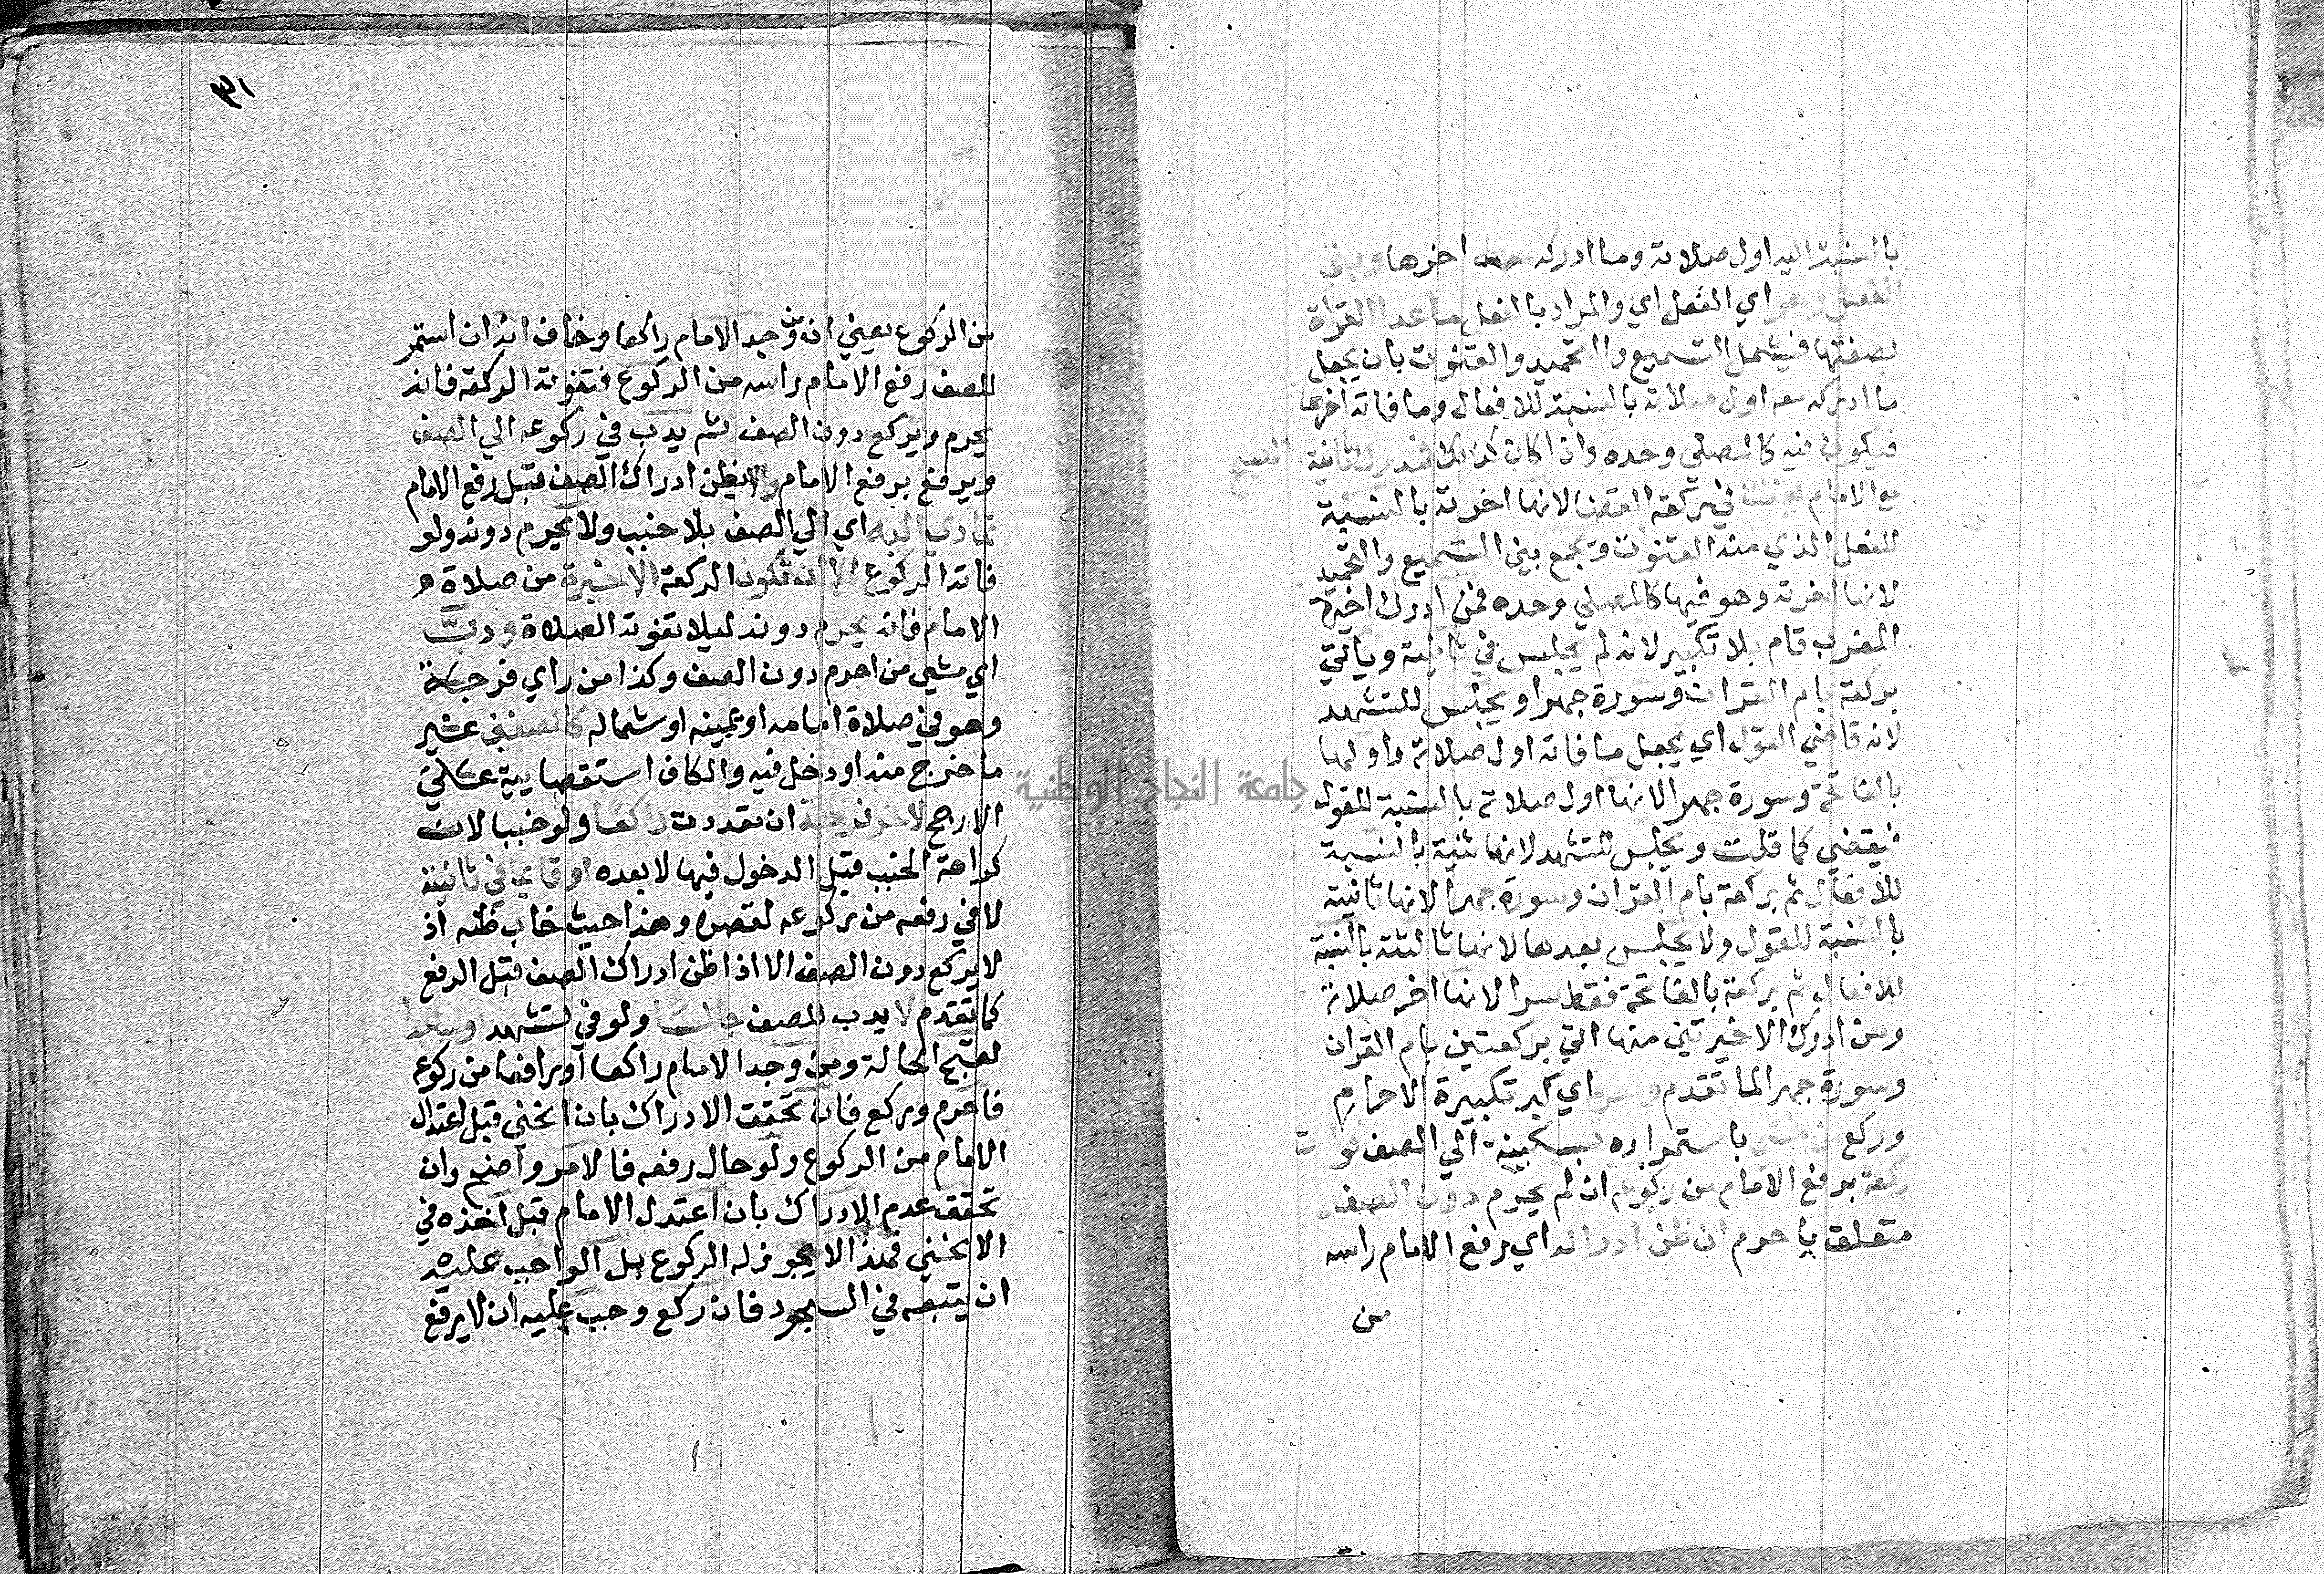 بالنسبة اليه اول صلاته وما ادركه اخرها وبني
الفعل وهو اي الفعل اي والمراد بالفعل ما عدا القراة
بصفتها فيشمل التسميع والتحميد والقنوت بان يجعل
ما ادركه معه اول صلاته بالنسبة للافعال وما فاته اخرها
فيكون فيه كالمصلي وحده واذا كان كذلك فمدرك ثانية الصبح
مع الامام يقنت في ركعة القضا لانها اخرته بالنسبة
للفعل الذي منه القنوت ويجمع بين التسميع والتحميد
لانها اخرته وهو فيها كالمصلي وحده فمن ادرك اخيرة
المغرب قام بلا تكبير لانه لم يجلس في ثانيته ويأتي
بركعة بام القران وسورة جهرا ويجلس للتشهد
لانه قاضي القول اي يجعل ما فاته اول صلاته واولها
بالفاتحة وسورة جهرا لانها اول صلاته بالنسبة للقول
فيقضي كما قلت ويجلس للتشهد لانها ثنية بالنسبة
للافعال ثم بركعة بام القران وسورة جهرا لانها ثانيته
بالنسبة للقول ولا يجلس بعدها لانها ثالثته بالنسبة
للافعال ثم بركعة بالفاتحة فقط سرا لانها اخر صلاته
ومن ادرك الاخيرتين منها اتي بركعتين بام القران
وسورة جهرا لما تقدم واحرم اي كبر تكبيرة الاحرام
وركع من خشي باستمراره بسكينة الي الصف فوات
ركعة برفع الامام من ركوعه ان لم يحرم دون الصف
متعلق باحرم ان ظن ادراكه اي يرفع الامام راسه
من
٣١
من الركوع يعني ان من وجد الامام راكعا وخاف انه ان استمر
للصف رفع الامام راسه من الركوع فتفوته الركعة فانه
يحرم ويركع دون الصف ثم يدب في ركوعه الي الصف
ويرفع برفع الامام والا يظن ادراك الصف قبل رفع الامام
تمادي اليه اي الي الصف بلا خبب ولا يحرم دونه ولو
فاته الركوع الا ان تكون الركعة الاخيرة من صلاة
الامام فانه يحرم دونه ليلا تفوته الصلاة ودبّ
اي مشي من احرم دون الصف وكذا من راي فرجة
وهو في صلاة امامه او يمينه او شماله كالصفين غير
ما خرج منه او دخل فيه والكاف استقصايية علي
الارجح لاخر فرجة ان تعددت راكعا ولو خببا لان
كراهة الخبب قبل الدخول فيها لا بعده او قايما في ثانيته
لا في رفعه من ركوعه لقصره وهذا حيث خاب ظنه اذ
لا يركع دون الصف الا اذا ظن ادراك الصف قبل الرفع
كما تقدم لا يدب للصف جالسا ولو في تشهد او ساجدا
لقبح الحالة ومن وجد الامام راكعا او رافعا من ركوع
فاحرم وركع فان تحقق الادراك بان انحني قبل اعتدال
الامام من الركوع ولو حال رفعه فالامر واضح وان
تحقق عدم الادراك بان اعتدل الامام قبل اخذه في
الانحني فهذا لا يجوز له الركوع بل الواجب عليه
ان يتبعه في السجود فان ركع وجب عليه ان لا يرفع
جامعة النجاح الوطنية